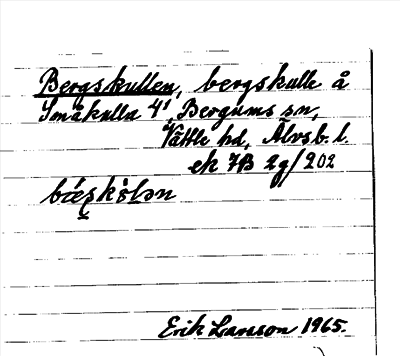 Bergskullen, bergskulle å
Småkulla 4¹, Bergums sn,
Vättle hd, Älvsb. l.
ek 7B 2g/202
Erik Larsson 1965.